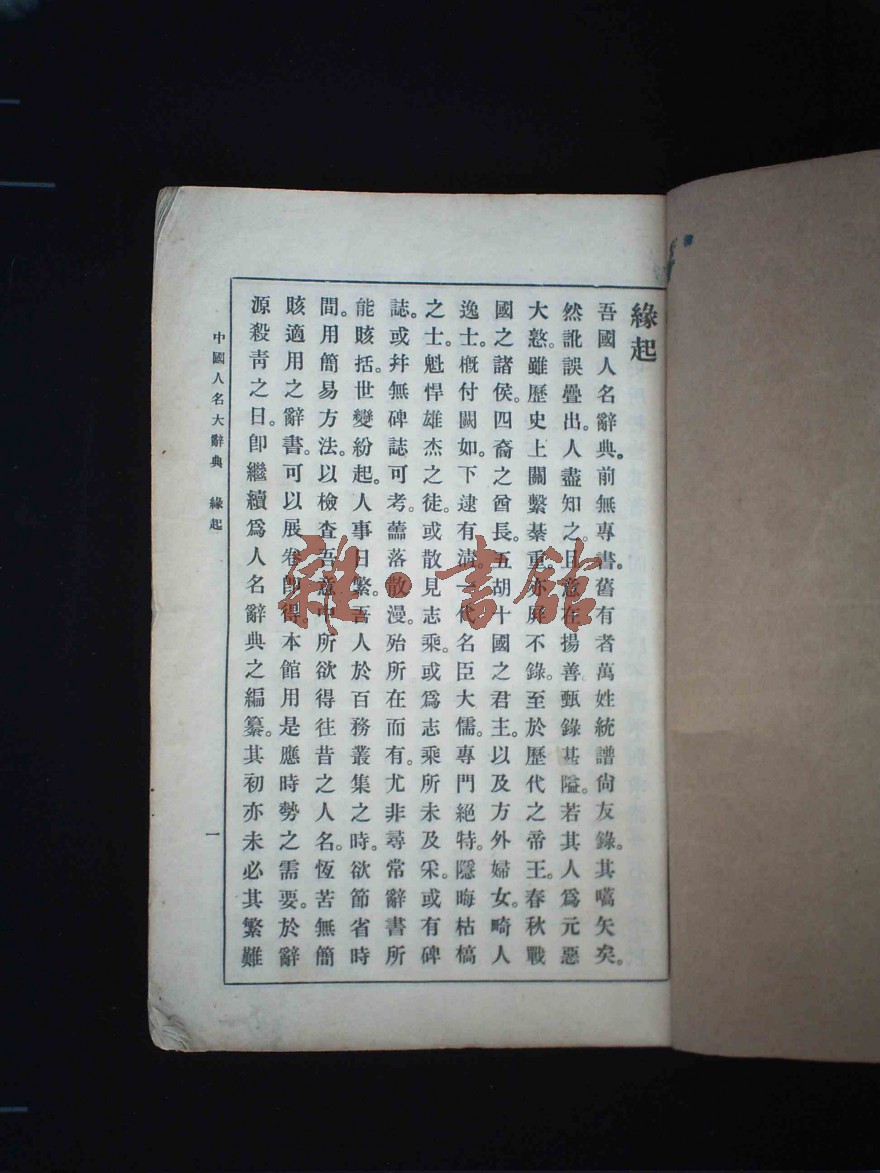 緣起
吾國人名辭典。前無專書。舊有者萬姓統譜尙友錄。其嚆矢矣。
然訛誤疊出。人盡知之。且意在揚善。甄錄甚隘。若其人爲元惡
大憝。雖歷史上關繫綦重。亦屏不錄。至於歷代之帝王。春秋戰
國之諸侯。四裔之酋長。五胡十國之君主。以及方外婦女。畸人
逸士。槪付闕如。下逮有淸。一代名臣大儒。專門絕特。隱晦枯槁
之士。魁悍雄杰之徒。或散見志乘。或爲志乘所未及采。或有碑
誌。或幷無碑誌可考。蕭落散漫。殆所在而有。尤非尋常辭書所
能賅括。世變紛起。人事日繁。吾人於百務叢集之時。欲節省時
間。用簡易方法。以檢查吾意中所欲得往昔之人名。恆苦無簡
賅適用之辭書。可以展卷卽得。本館用是應時勢之需要。於辭
源殺靑之日。卽繼續爲人名辭典之編纂。其初亦未必其繁難
中國人名大辭典 緣起
一
雜·書館